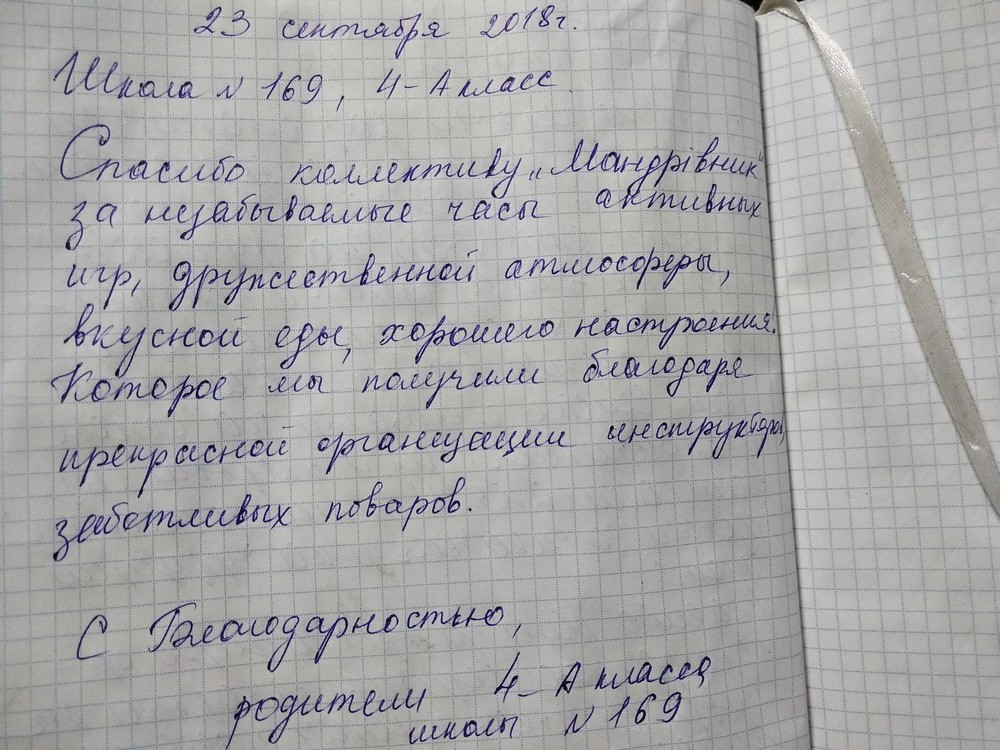 23 сентября 2018г.
Школа № 169, 4-А класс
Спасибо коллективу „Мандрівник"
за незабываемые часы активных
игр, дружественной атмосферы,
вкусной еды, хорошего настроения.
Которое мы получили благодаря
прекрасной организации инструкторов,
заботливых поваров.
С Благодарностью,
родители 4-А класса
школы № 169